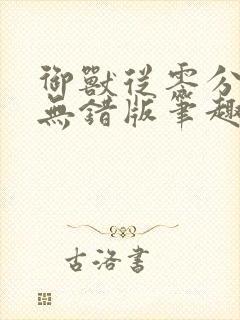 御獸從零分
無錯版筆趣
古洛書